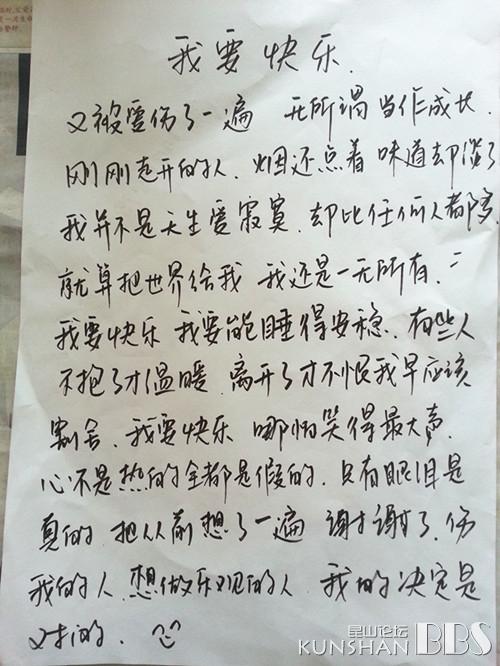 我要快乐.
又被爱伤了一遍 无所谓当作成长.
刚刚走开的人.烟还点着 味道却淡了
我并不是天生爱寂寞.却比任何人都多.
就算把世界给我 我还是一无所有.=
我要快乐 我要能睡得安稳.有些人
不抱了才温暖.离开了才不恨我早应该
割舍.我要快乐 哪怕笑得最大声.
心不是热的全都是假的.只有眼泪是
真的.把从前想了一遍 谢谢了.伤
我的人.想做乐观的人.我的决定是
对的.
昆山论坛
KUNSHAN BBS